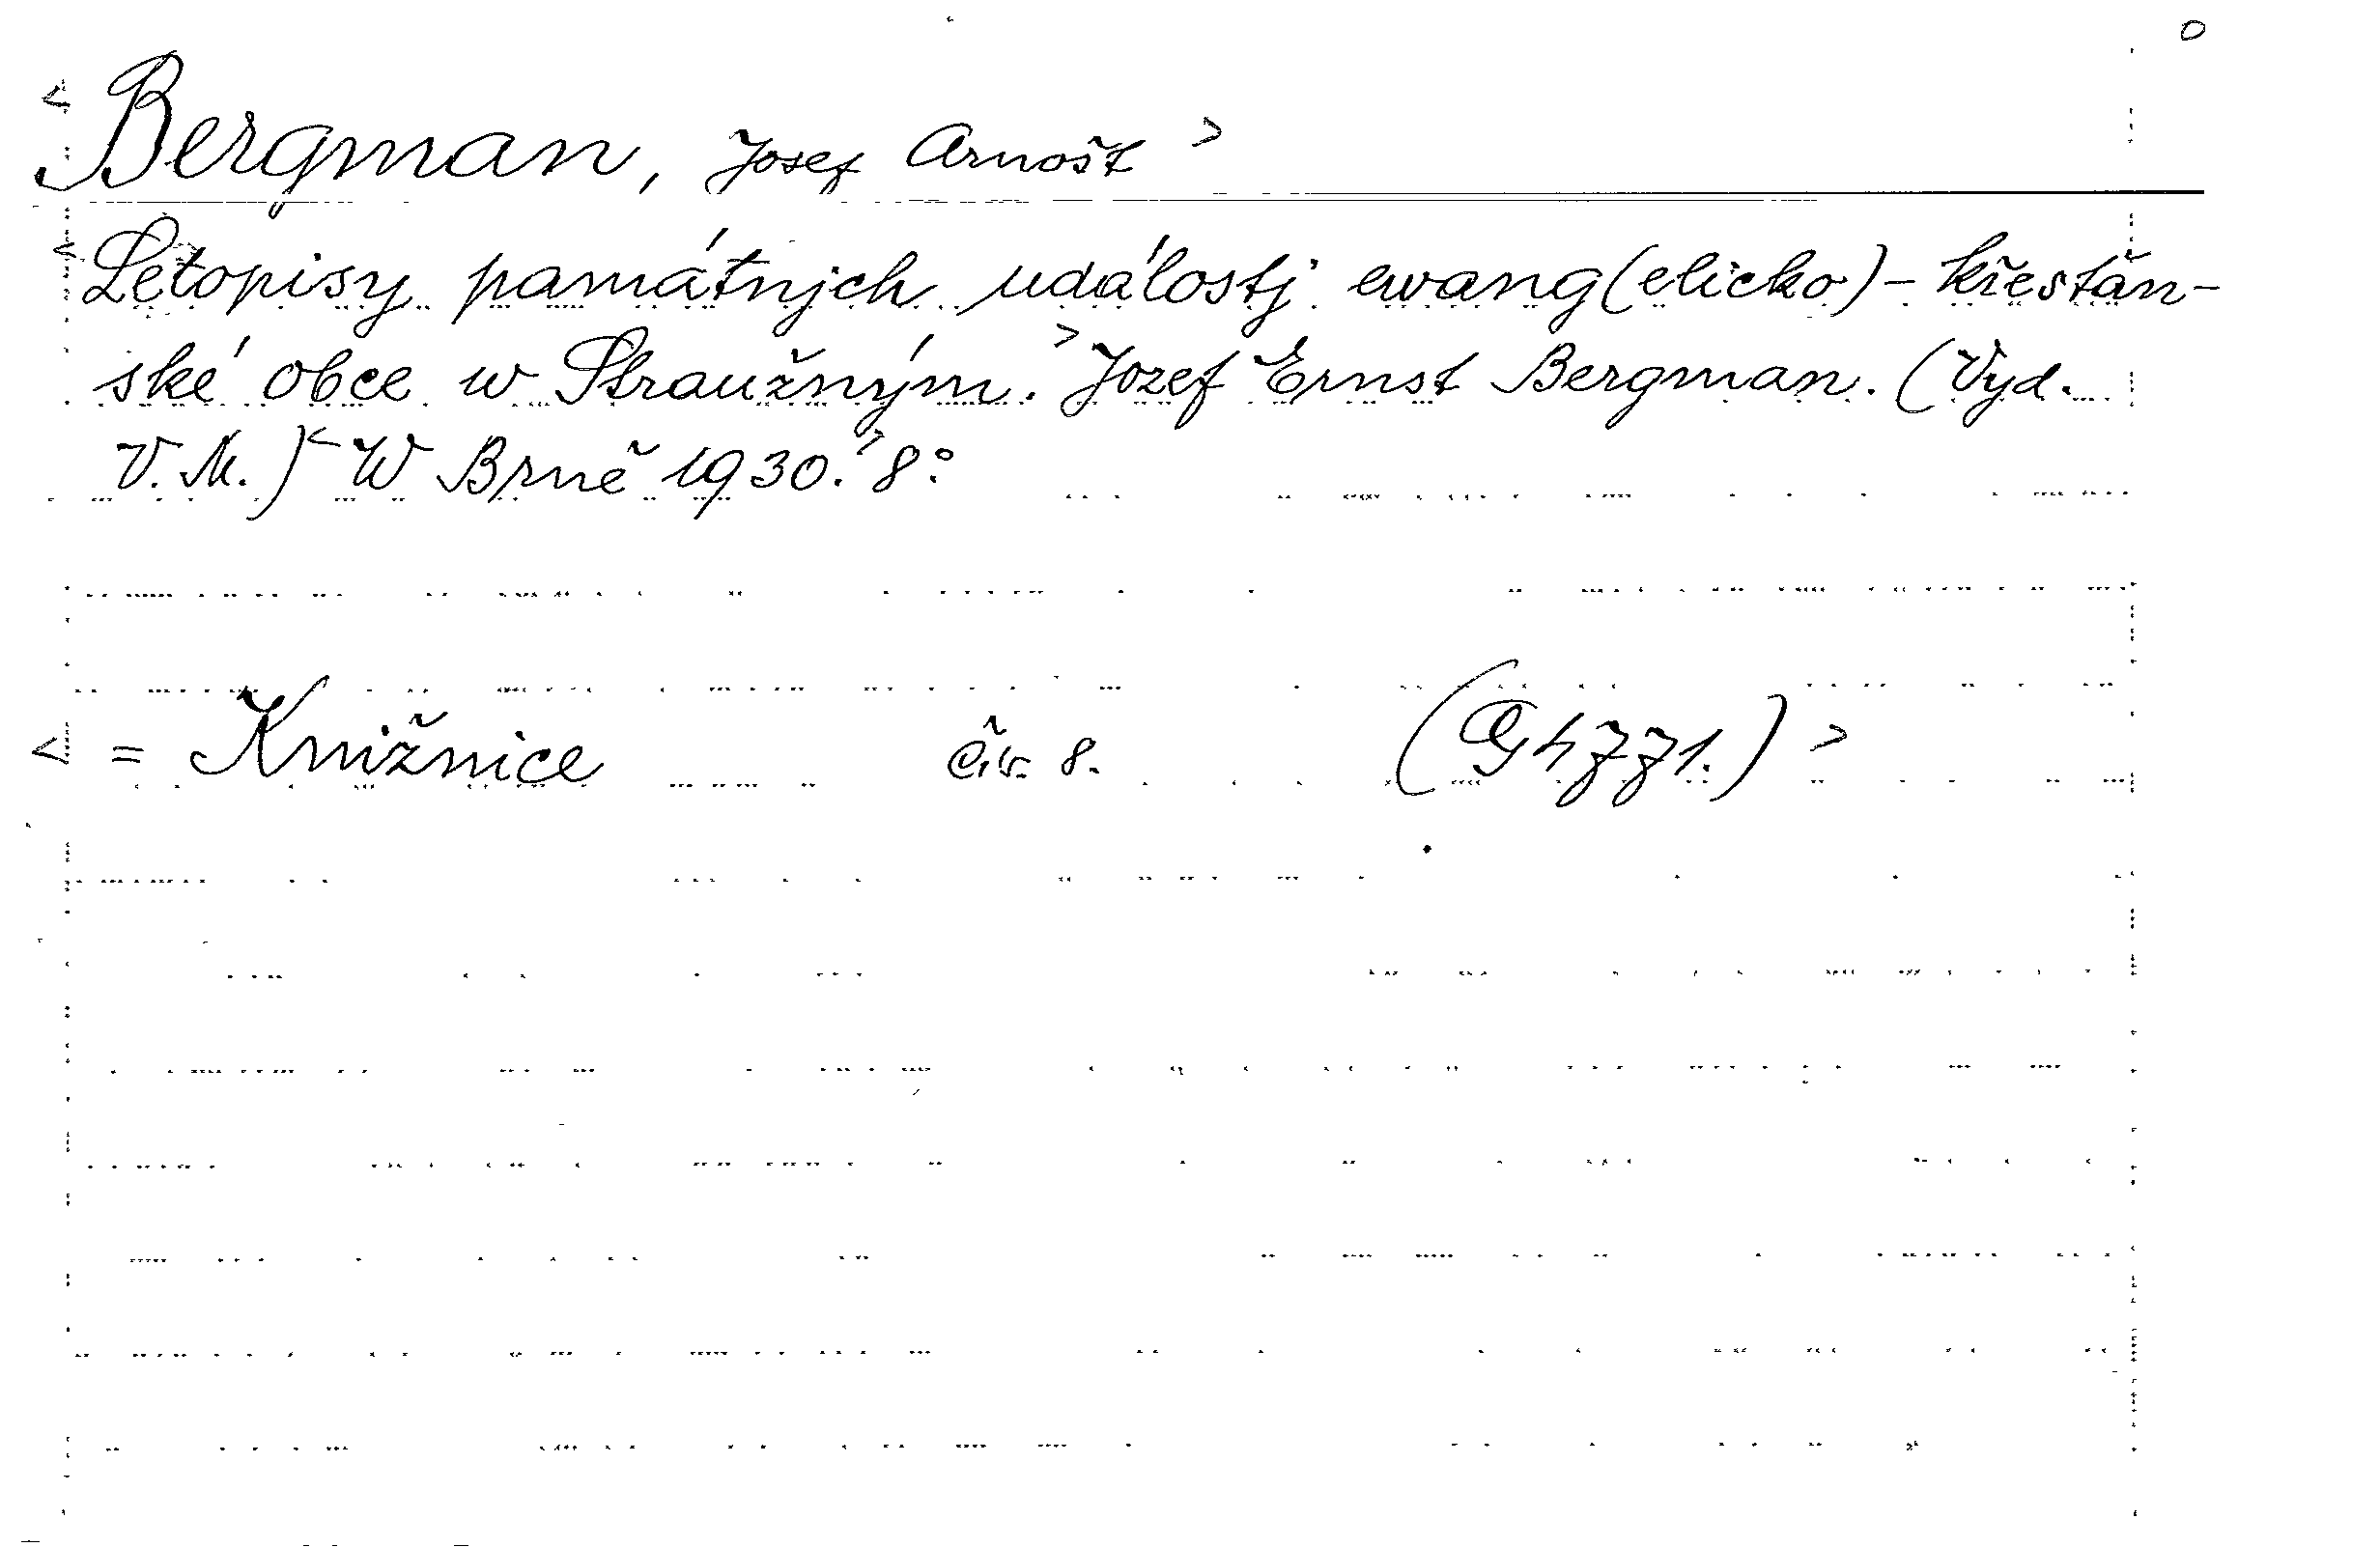 <Bergman, Josef Arnošt>
<Letopisy památných událostj ewang(elicko)-křestán-
ské obce w Straužným.> Jozef Ernst Bergman. (Vyd.
V. M.) <W Brně 1930.> 8°.
<= Knižnice čís. 8. (G 4771.)>